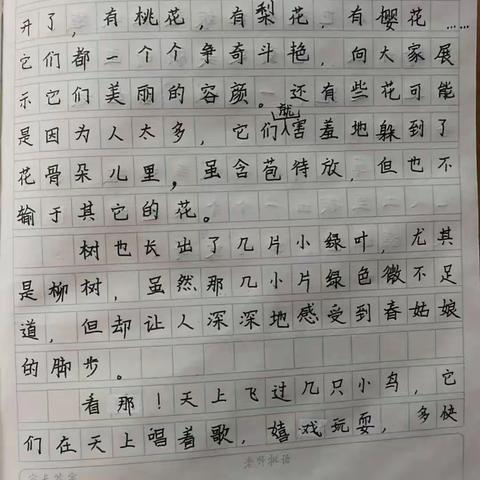 开了，有桃花，有梨花，有樱花……
它们都一个个争奇斗艳，向大家展
示它们美丽的容颜。还有些花可能
是因为人太多，它们就害羞地躲到了
花骨朵儿里，虽含苞待放，但也不
输于其它的花。
树也长出了几片小绿叶，尤其
是柳树，虽然那几小片绿色微不足
道，但却让人深深地感受到春姑娘
的脚步。
看那！天上飞过几只小鸟，它
们在天上唱着歌，嬉戏玩耍，多快
老师批语